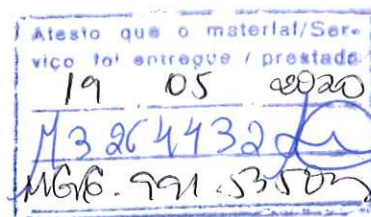 Atesto que o material/Ser-
viço foi entregue / prestado
19 05 2020
M3264432